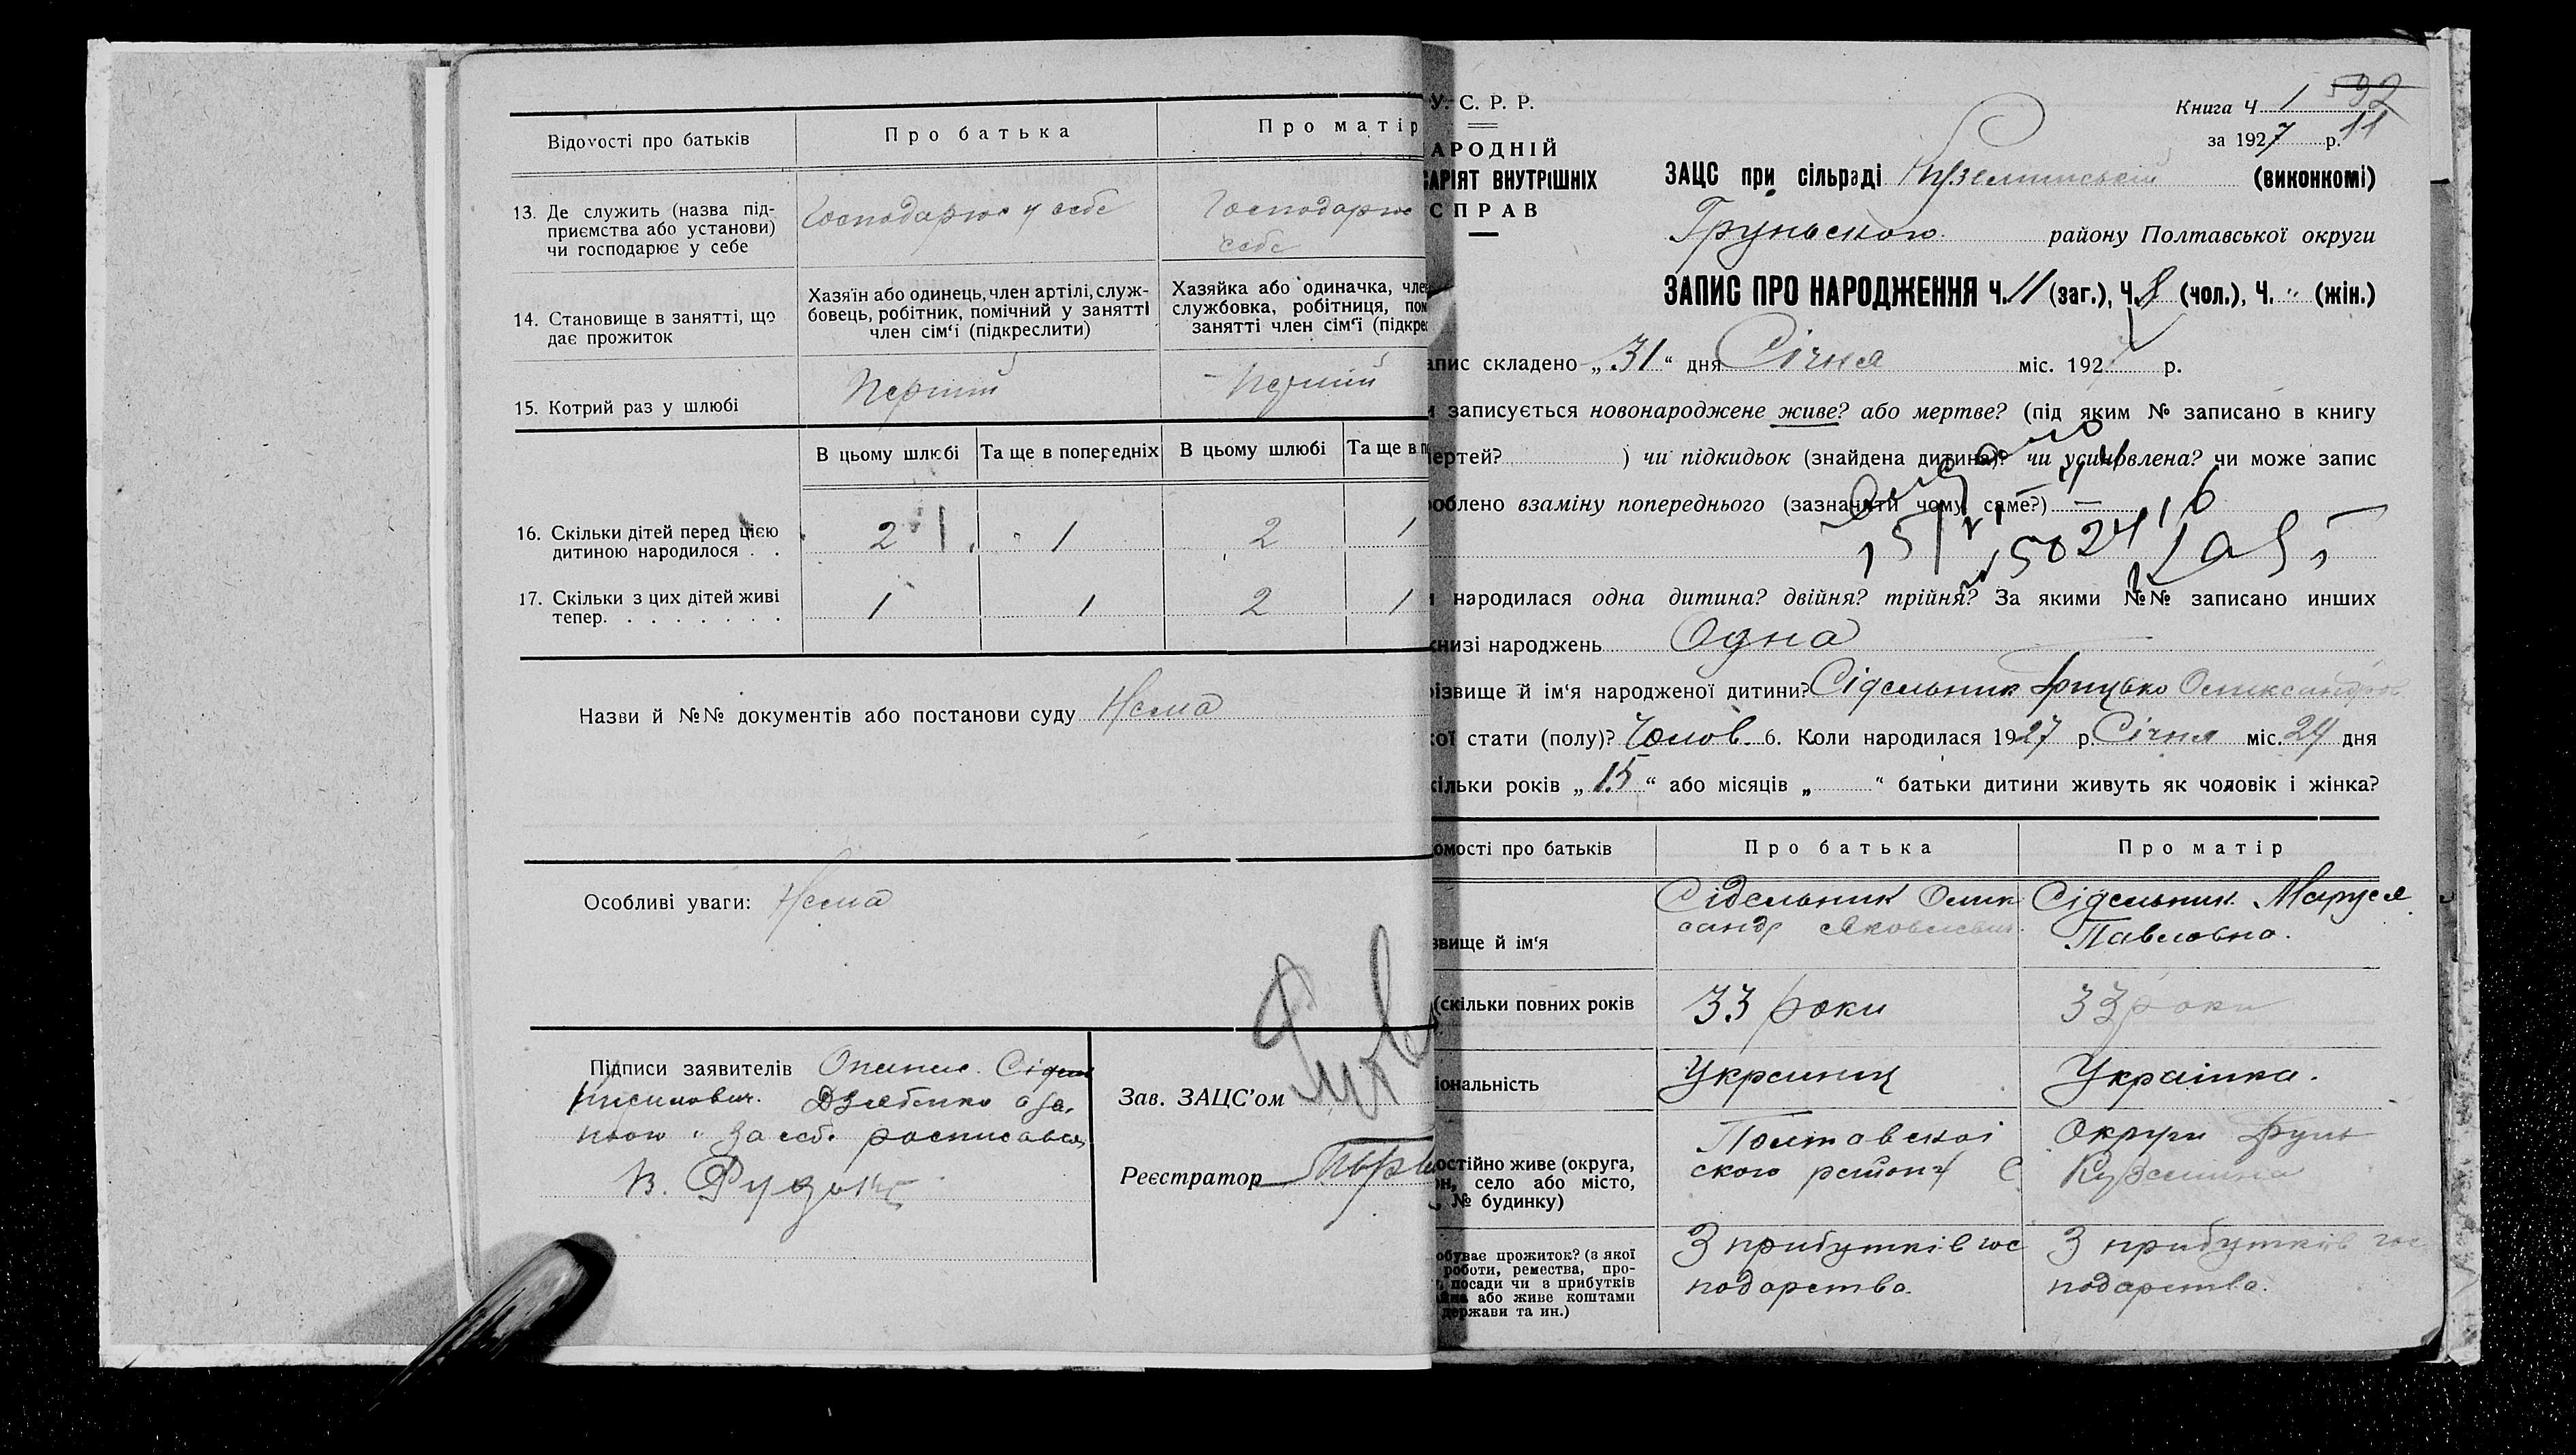 Відомості про батьків
Про батька
Про матір
13. Де служить (назва під-
приємства або установи)
чи господарює у себе
Господарює у себе
Господарює
себе
14. Становище в занятті, що
дає прожиток
Хазяїн або одинець, член артілі, служ-
бовець, робітник, помічний у занятті
член сім'ї (підкреслити)
Хазяйка або одиначка, чле
службовка, робітниця, пом
занятті член сім'ї (підкре
15. Котрий раз у шлюбі
Перший
Перший
В цьому шлюбі
Та ще в попередніх
В цьому шлюбі
Та ще в п
16. Скільки дітей перед цією
дитиною народилося . .
2
1
2
1
17. Скільки з цих дітей живі
тепер. . . . . . . .
1
1
2
1
Назви й №№ документів або постанови суду Нема
Особливі уваги: Нема
Підписи заявителів
росписався
Зав. ЗАЦС'ом
Реєстратор
У. С. Р. Р.
АРОДНІЙ
АРІЯТ ВНУТРІШНІХ
СПРАВ
Книга Ч 1 592
за 1927 р. 11
ЗАЦС при сільраді Куземинській (виконкомі)
Груньского району Полтавської округи
ЗАПИС ПРО НАРОДЖЕННЯ Ч. 11 (заг.), Ч. 8 (чол.), Ч. " (жін.)
апис складено „31" дня Січня міс. 1927 р.
записується новонароджене живе? або мертве? (під яким № записано в книгу
ертей? ) чи підкидьок (знайдена дитина)? чи усиновлена? чи може запис
облено взаміну попереднього (зазначити чому саме?) —
народилася одна дитина? двійня? трійня? За якими №№ записано инших
низі народжень Одна
ізвище й ім'я народженої дитини? Сідельник Грицько Олександров
ої стати (полу)? Чолов. 6. Коли народилася 1927 р. Січня міс. 24 дня
ільки років „15" або місяців „ " батьки дитини живуть як чоловік і жінка?
омості про батьків
Про батька
Про матір
звище й ім'я
Сідельник Олек
сандр Яковлевич
Сідельник Маруся
Павловна.
(скільки повних років
33 роки
33 роки
іональність
Украинец
Украінка.
остійно живе (округа,
он, село або місто,
№ будинку)
Полтавскоі
ского району С
Округи Грунь
Куземина
обуває прожиток? (з якої
роботи, ремества, про-
посади чи з прибутків
або живе коштами
держави та ин.)
З прибутків гос
подарства.
З прибутків гос
подарства.